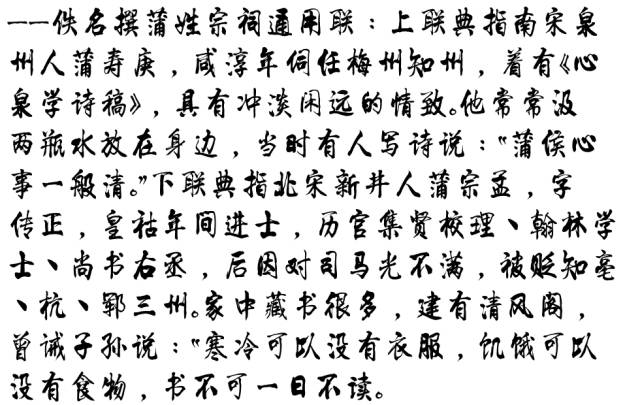 ——佚名撰蒲姓宗祠通用联：上联典指南宋泉
州人蒲寿庚，咸淳年伺任梅州知州，着有《心
泉学诗稿》，具有冲淡闲远的情致。他常常汲
两瓶水放在身边，当时有人写诗说：“蒲侯心
事一般清。”下联典指北宋新井人蒲宗孟，字
传正，皇祜年间进士，历官集贤校理、翰林学
士、尚书右丞，后因对司马光不满，被贬知亳
、杭、郓三州。家中藏书很多，建有清风阁，
曾诫子孙说：“寒冷可以没有衣服，饥饿可以
没有食物，书不可一日不读。